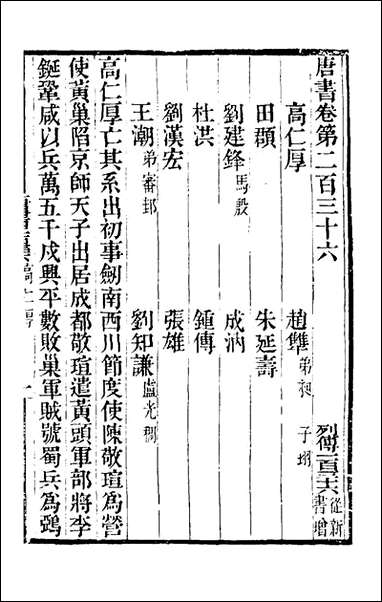 唐書卷第二百三十六 列傳一百六十六 從新書增
高仁厚 趙犨 弟昶 子珝
田頵 朱延壽
劉建鋒 馬殷 成汭
杜洪 鍾傳
劉漢宏 張雄
王潮 弟審邽 劉知謙 盧光稠
高仁厚亡其系出初事劔南西川節度使陳敬瑄爲營
使黃巢陷京師天子出居成都敬瑄遣黃頭軍部將李
鋋鞏咸以兵萬五千戍興平數敗巢軍賊號蜀兵爲鵶